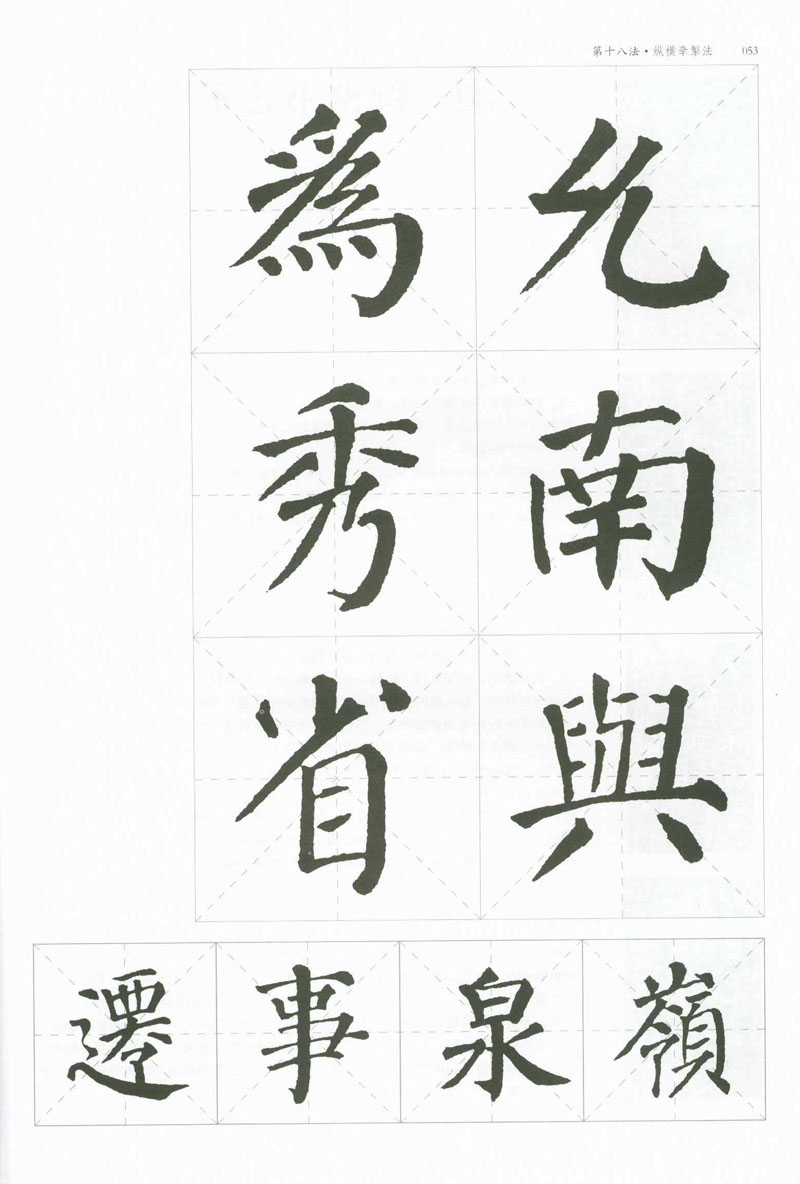 第十八法·纵横牵掣法 053
南與
爲秀省
嶺泉事遷